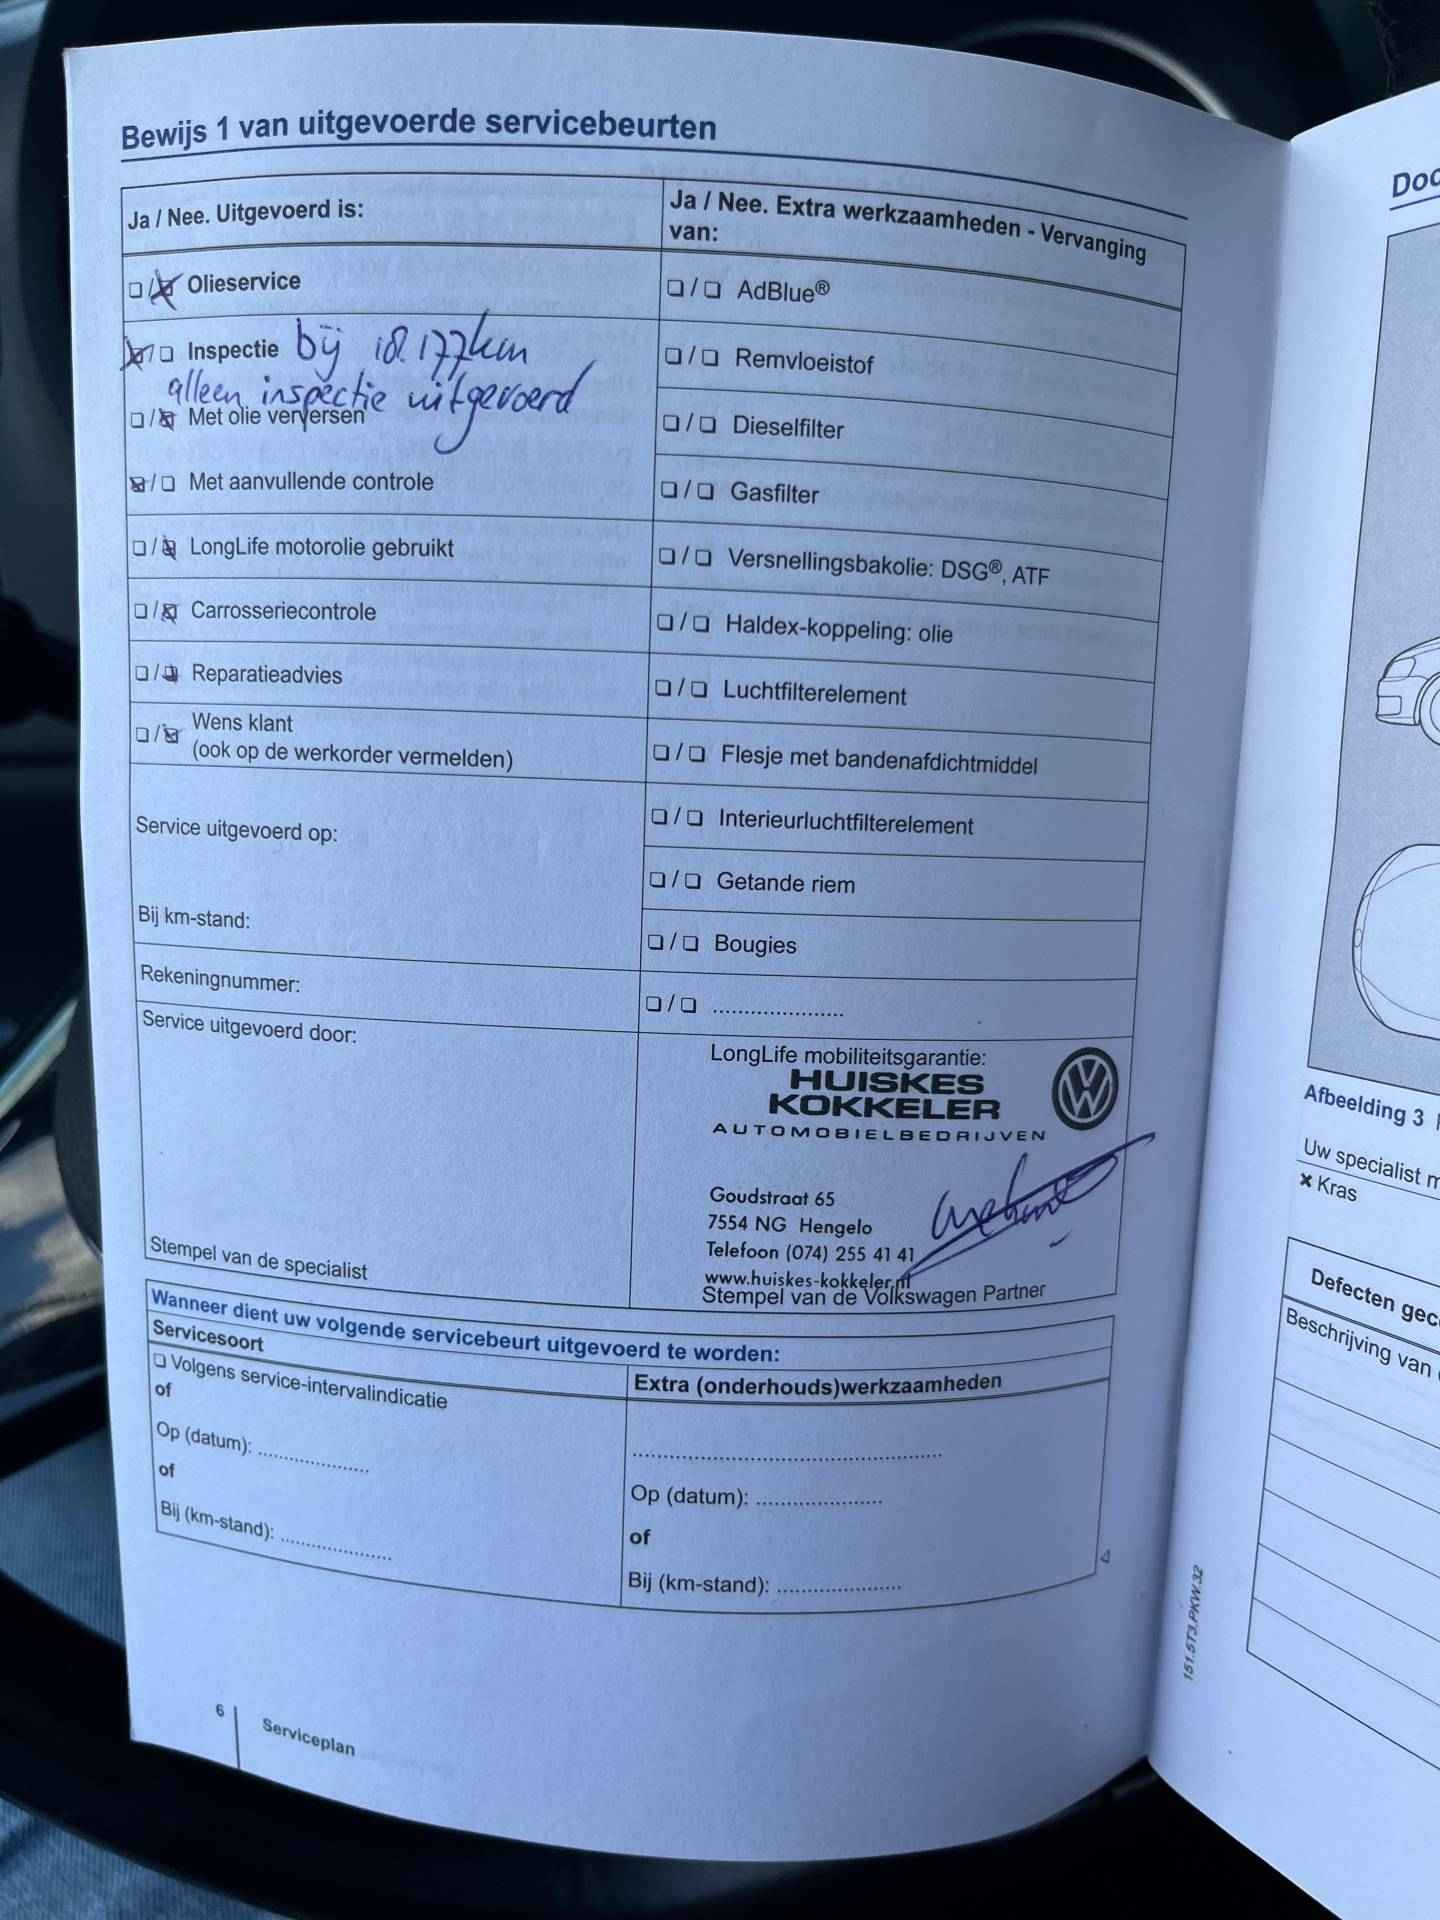 Bewijs 1 van uitgevoerde servicebeurten
Ja / Nee. Uitgevoerd is:
❑ / ❑ Olieservice
❑ / ❑ Inspectie bij 18.177km
alleen inspectie uitgevoerd
❑ / ❑ Met olie verversen
❑ / ❑ Met aanvullende controle
❑ / ❑ LongLife motorolie gebruikt
❑ / ❑ Carrosseriecontrole
❑ / ❑ Reparatieadvies
❑ / ❑ Wens klant
(ook op de werkorder vermelden)
Service uitgevoerd op:
Bij km-stand:
Rekeningnummer:
Service uitgevoerd door:
Stempel van de specialist
Ja / Nee. Extra werkzaamheden - Vervanging
van:
❑ / ❑ AdBlue®
❑ / ❑ Remvloeistof
❑ / ❑ Dieselfilter
❑ / ❑ Gasfilter
❑ / ❑ Versnellingsbakolie: DSG®, ATF
❑ / ❑ Haldex-koppeling: olie
❑ / ❑ Luchtfilterelement
❑ / ❑ Flesje met bandenafdichtmiddel
❑ / ❑ Interieurluchtfilterelement
❑ / ❑ Getande riem
❑ / ❑ Bougies
❑ / ❑ .....................
LongLife mobiliteitsgarantie:
HUISKES
KOKKELER
AUTOMOBIELBEDRIJVEN
Goudstraat 65
7554 NG Hengelo
Telefoon (074) 255 41 41
www.huiskes-kokkeler.nl
Stempel van de Volkswagen Partner
Wanneer dient uw volgende servicebeurt uitgevoerd te worden:
Servicesoort
❑ Volgens service-intervalindicatie
of
Op (datum): ..................
of
Bij (km-stand): ..................
Extra (onderhouds)werkzaamheden
.................................................
Op (datum): ....................
of
Bij (km-stand): ....................
6
Serviceplan
151.5T3.PKW.32
Afbeelding 3
Uw specialist
× Kras
Defecten
Beschrijving van